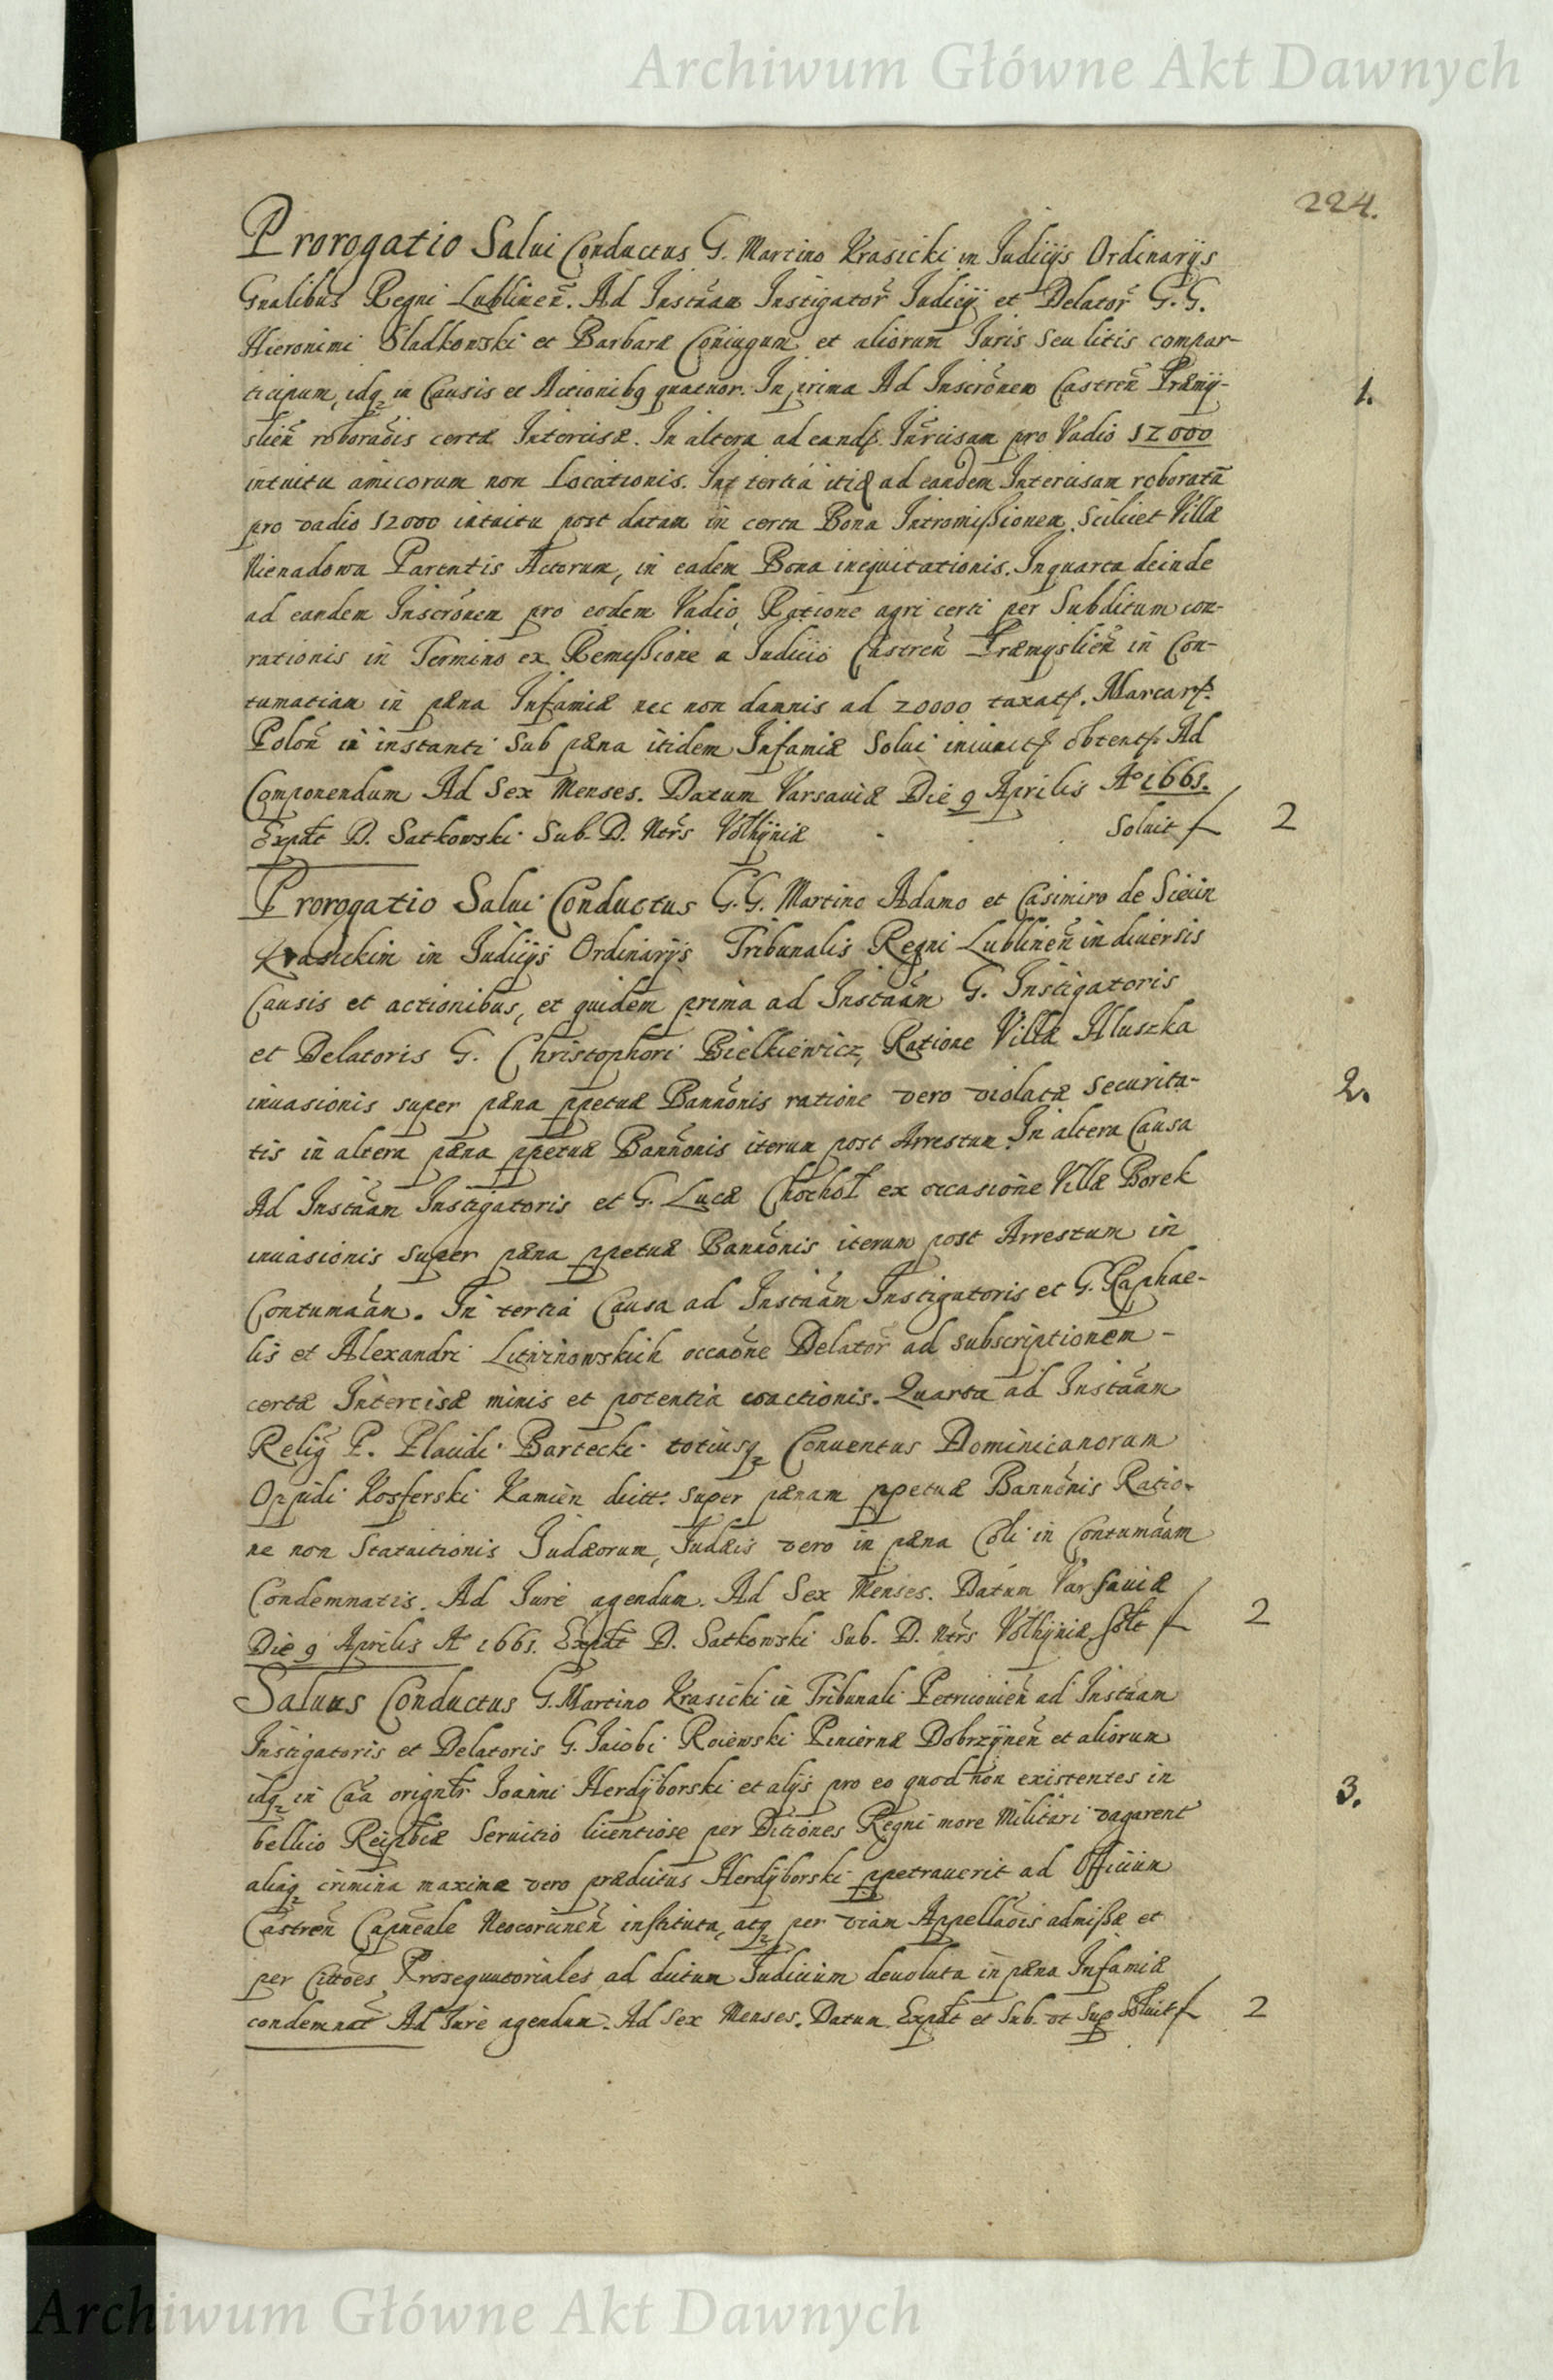 Archiwum Główne Akt Dawnych
224.
Prorogatio Salui Conductus G. Martino Krasicki in Iudicijs Ordinarijs
Gnalibus Regni Lublinen. Ad Instãm Instigator Iudicij et Delator G. G.
Hieronimi Sladkowski et Barbaræ Coniugum et aliorum Iuris seu litis compar-
ticipum, idq in Causis et Actionibq quatuor. In prima Ad Inscrõnem Castren Præmÿ-
slien roboraõis certæ Intercisæ. In altera ad eand. Inrcisam pro Vadio 12000
intuitu amicorum non Locationis. In tertia itid ad eandem Intercisam roboratã
pro vadio 12000 intuitu post datam in certa Bona Intromißionem scilicet Villæ
Nienadowa Parentis Actorum, in eadem Bona inequitationis. In quarta deinde
ad eandem Inscrõnem pro eodem Vadio, Ratione agri certi per Subditum con-
rationis in Termino ex Remißione a Iudicio Castren Præmyslien in Con-
tumatiam in pæna Infamiæ nec non damnis ad 20000 taxat. Marcar.
Polon in instanti sub pæna itidem Infamiæ Solui iniunct obtent. Ad
Componendum Ad Sex Menses. Datum Varsauiæ Die 9 Aprilis Aº 1661.
Expdt D. Satkowski Sub. D. Ntrs Volhÿniæ Soluit f 2
1.
Prorogatio Salui Conductus G. G. Martino Adamo et Casimiro de Siecin
Krasickim in Iudicijs Ordinarijs Tribunalis Regni Lublinen in diuersis
Causis et actionibus, et quidem prima ad Instãm G. Instigatoris
et Delatoris G. Christophori Bielkiewicz, Ratione Villæ Hluszka
inuasionis super pæna ppetuæ Bannõnis ratione vero violatæ securita-
tis in altera pæna ppetuæ Bannõnis iterum post Arrestum. In altera Causa
Ad Instãm Instigatoris et G. Lucæ Chochoł ex occasione Villæ Borek
inuasionis super pæna ppetuæ Bannõnis iterum post Arrestum in
Contumaãm. In tertia Causa ad Instãm Instigatoris et G. Raphae-
lis et Alexandri Litwinowskich occaõne Delator ad subscriptionem -
certæ Intercisæ minis et potentia coactionis. Quarta ad Instãm
Relig P. Placidi Bartecki totiusq Conuentus Dominicanorum
Oppidi Koszerski Kamien dictt. super pænam ppetuæ Bannõnis Ratio-
ne non Statuitionis Iudæorum, Iudæis vero in pæna Coli in Contumaãm
Condemnatis. Ad Iure agendum. Ad Sex Menses. Datum Varsauiæ
Die 9 Aprilis Aº 1661. Expdt D. Satkowski Sub. D. Ntrs Volhÿniæ solt f 2
2.
Saluus Conductus G. Martino Krasicki in Tribunali Petricouien ad Instãm
Instigatoris et Delatoris G. Iacobi Roiewski Pincernæ Dobrzÿnen et aliorum
idq in Caã orignlr Ioanni Herdÿborski et alÿs pro eo quod non existentes in
bellico Reipblicæ Seruitio licentiose per Ditiones Regni more Militari vagarent
aliaq crimina maxime vero prædictus Herdÿborski ppetrauerit ad Officium
Castren Capneale Neocorcinen instituta, atq per viam Appellaõis admißæ et
per Cittões Prosequutoriales ad dictum Iudicium deuoluta in pæna Infamiæ
condemnat Ad Iure agendum. Ad sex Menses. Datum Expdt et Sub. vt Sup Soluit f 2
3.
Archiwum Główne Akt Dawnych